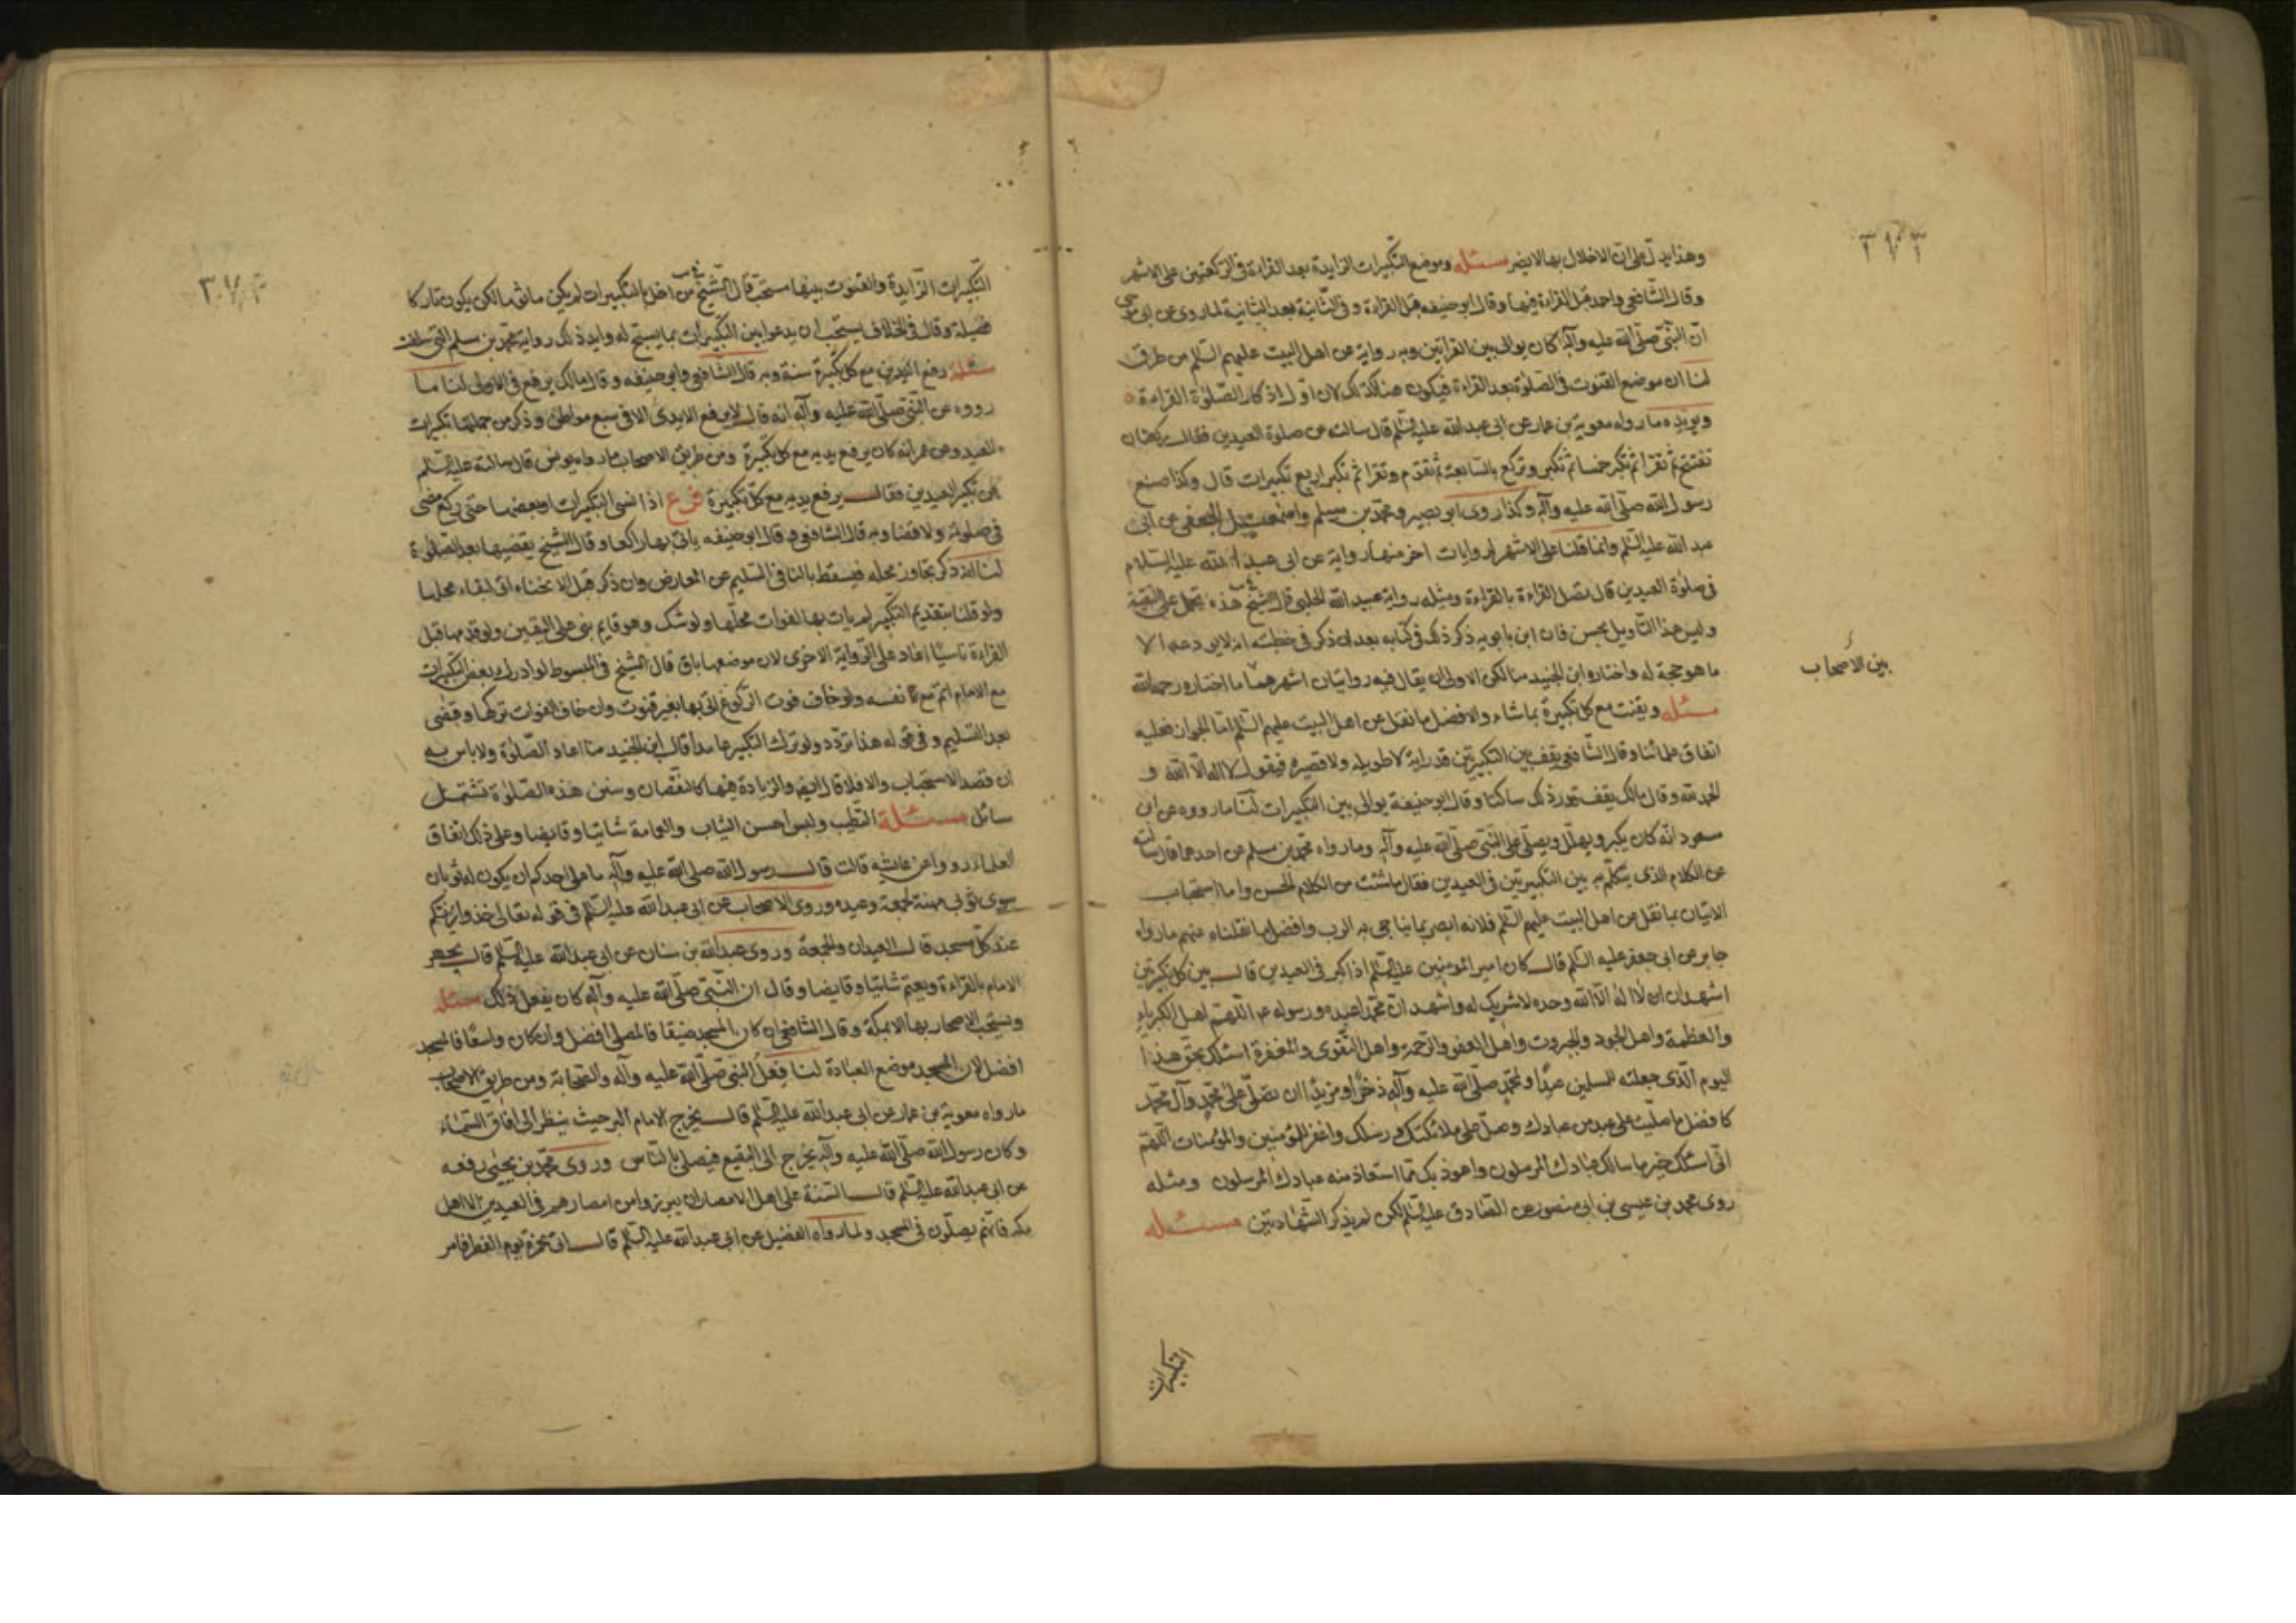 ٣٧٣
وهذا يدل على ان الاخلال بها لا يضر مسئله وموضع التكبيرات الزايدة بعد القراءة فى الركعتين على الاشهر
وقال الشافعى واحد قبل القراءة فيها وقال ابو حنيفه قبل القراءة وفى الثانية بعد الثانية لما روى عن ابى موسى
ان النبى صلى الله عليه وآله كان يوالى بين القراتين وبه رواية عن اهل البيت عليهم السلم من طرق
لنا ان موضع القنوت فى الصلوة بعد القراءة فيكون هنا كذلك لان اول اذكار الصلوة القراءة
ويؤيده ما رواه معوية بن عمار عن ابى عبد الله عليه السلم قال سالته عن صلوة العيدين فقال ركعتان
تفتتح ثم تقرا ثم تكبر خمسا ثم تكبر وتركع بالسابعة ثم تقدم وتقرا ثم تكبر اربع تكبيرات قال وكذا صنع
رسول الله صلى الله عليه وآله وكذا روى ابو بصير ومحمد بن مسلم واسمعيل الجعفى عن ابى
عبد الله عليه السلم وانما قلنا على الاشهر لروايات اخر منها رواية عن ابى عبد الله عليه السلام
فى صلوة العيدين قال تصل القراءة بالقراءة ومثله رواية عبيد الله الحلبى قال الشيخ هذه تحمل على التقية
وليس هذا التاويل بحسن فان ابن بابويه ذكر ذلك فى كتابه بعد ان ذكر فى خطبته انه لا يودعه الا
ما هو حجة له واختاره ابن الجنيد منا لكن الاولى ان يقال فيه روايتان اشهرهما ما اختاره رحمه الله
بين الأصحاب
مسئله ويقنت مع كل تكبيرة بما شاء والافضل ما نقل عن اهل البيت عليهم السلم اما الجواز فعليه
اتفاق علمائنا وقال الشافعى يقف بين التكبيرتين قدر اية لا طويله ولا قصيره فيقول لا اله الا الله و
الحمد لله وقال مالك يقف بقدر ذلك ساكتا وقال ابو حنيفة يوالى بين التكبيرات لنا ما رووه عن ابن
مسعود انه كان يكبر ويهلل ويصلى على النبى صلى الله عليه وآله وما رواه محمد بن مسلم عن احدهما قال سالته
عن الكلام الذى يتكلم به بين التكبيرتين فى العيدين فقال ما شئت من الكلام الحسن واما استحباب
الاتيان بما نقل عن اهل البيت عليهم السلم فلانه ابصر بما يناجى به الرب وافضل ما نقلناه عنهم ما رواه
جابر عن ابى جعفر عليه السلم قال كان امير المؤمنين عليه السلم اذا كبر فى العيدين قال بين كل تكبيرتين
اشهد ان لا اله الا الله وحده لا شريك له واشهد ان محمدا عبده ورسوله اللهم اهل الكبرياء
والعظمة واهل الجود والجبروت واهل العفو والرحمة واهل التقوى والمغفرة اسئلك بحق هذا
اليوم الذى جعلته للمسلمين عيدا ولمحمد صلى الله عليه وآله ذخرا ومزيدا ان تصلى على محمد وآل محمد
كافضل ما صليت على عبد من عبادك وصل على ملائكتك ورسلك واغفر للمؤمنين والمؤمنات اللهم
انى اسئلك خير ما سالك عبادك المرسلون واعوذ بك مما استعاذ منه عبادك المرسلون ومثله
روى محمد بن عيسى بن ابى منصور عن الصادق عليه السلم لكن لم يذكر الشهادتين مسئله
التكبيرات
٣٧٤
التكبيرات الزايدة والقنوت بينها مستحب قال الشيخ من اخل بالتكبيرات لم يكن ماثوما لكن يكون تاركا
فضيلة وقال فى الخلاف يستحب ان يدعوا بين التكبيرات بما يسنح له وايد ذلك رواية محمد بن مسلم التى سلفت
مسئلة رفع اليدين مع كل تكبيرة سنة وبه قال الشافعى وابو حنيفه وقال مالك يرفع فى الاولى لنا ما
رووه عن النبى صلى الله عليه وآله انه قال لا يرفع الايدى الا فى سبع مواطن وذكر من جملتها تكبيرات
العيد وعن عمر انه كان يرفع يديه مع كل تكبيرة ومن طريق الاصحاب ما رواه يونس قال سالته عليه السلم
عن تكبير العيدين فقال يرفع يديه مع كل تكبيرة فرع اذا نسى التكبيرات او بعضها حتى ركع مضى
فى صلوته ولا قضا وبه قال الشافعى وقال ابو حنيفه ياتى بها راكعا وقال الشيخ يقضيها بعد الصلوة
لنا انه ذكر تجاوز محله فيسقط بالنافى السليم عن المعارض وان ذكر قبل الانحناء اتى لبقاء محلها
ولو قلنا بتقديم التكبير لم يات بها لفوات محلها ولو شك وهو قايم بنى على اليقين ولو قدمها قبل
القراءة ناسيا اعاد على الرواية الاخرى لان موضعها باق قال الشيخ فى المبسوط لو ادرك بعض التكبيرات
مع الامام اتم مع نفسه ولو خاف فوت الركوع اتى بها بغير قنوت وان خاف الفوات تركها وقضى
بعد التسليم وفى قوله هذا تردد ولو ترك التكبير عامدا قال ابن الجنيد منا اعاد الصلوة ولا باس به
ان قصد الاستحباب والا فلا قال ايضا والزيادة فيها كالنقصان وسنن هذه الصلوة تشتمل
مسائل مسئلة التطيب ولبس احسن الثياب والعمامة شاتيا وقايضا وعلى ذلك اتفاق
العلماء رووا عن عائشه قالت قال رسول الله صلى الله عليه وآله ما على احدكم ان يكون له ثوبان
سوى ثوبى مهنة لجمعة وعيده وروى الاصحاب عن ابى عبد الله عليه السلم فى قوله تعالى خذوا زينتكم
عند كل مسجد قال العيدان والجمعة وروى عبد الله بن سنان عن ابى عبد الله عليه السلم قال يجهر
الامام بالقراءة ويعتم شاتيا وقايضا وقال ان النبى صلى الله عليه وآله كان يفعل ذلك مسئله
ويستحب الاصحار بها الا بمكة وقال الشافعى ان كان المسجد ضيقا فالمصلى افضل وان كان واسعا فالمسجد
افضل لان المسجد موضع العبادة لنا فعل النبى صلى الله عليه وآله والصحابة ومن طريق الاصحاب
ما رواه معوية بن عمار عن ابى عبد الله عليه السلم قال يخرج الامام البر حيث ينظر الى افاق السماء
وكان رسول الله صلى الله عليه وآله يخرج الى البقيع فيصلى بالناس وروى محمد بن يحيى رفعه
عن ابى عبد الله عليه السلم قال السنة على اهل الامصار ان يبرزوا من امصارهم فى العيدين الا اهل
مكه فانهم يصلون فى المسجد ولما رواه الفضيل عن ابى عبد الله عليه السلم قال اتى بخمرة يوم الفطر فامر